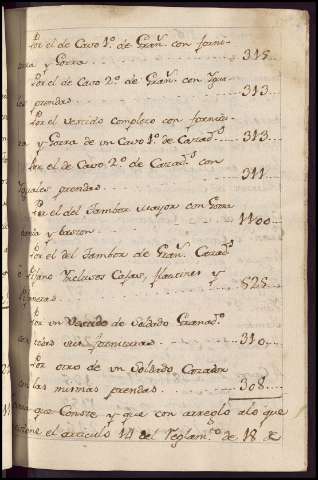 Por el de Cavo 1º. de Grañ. con forni-
tura y Gorra . . . . . . . . 315..
Por el de Cavo 2º. de Grañ. con Igua-
les prendas . . . . . . . . 313.
Por el vestido completo con fornitu-
ra y Gorra de un Cavo 1º. de Cazadˢ. 313.
Por el de Cavo 2º. de Cazadˢ. con
Iguales prendas . . . . . . . . 311
Por el del Tambor mayor con
y baston . . . . . . . . 1100..
Por el del Tambor de Grañ. Cazadˢ.
o Pifano Inclusos Cajas, flautines y
. . . . . . . . 525..
Por un Vestido de Soldado Granadº.
con todas sus . . . . . . . . 310..
Por otro de un Soldado Cazador
con las mismas prendas . . . . 308.
para que Conste y que con arreglo alo que
el articulo 14 del Reglamᵗᵒ. de 18 de